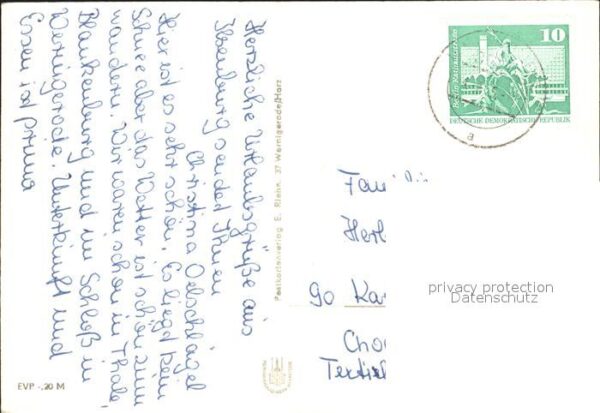 Herzliche Urlaubsgrüße aus
Ilsenburg sendet Ihnen
Christina Oelschlägel
Hier ist es sehr schön. Es liegt kein
Schnee aber das Wetter ist schön zum
wandern. Wir waren schon in Thale,
Blankenburg und im Schloß in
Wernigerode. Unterkunft und
Essen ist prima
Postkartenverlag E. Riehn, 37 Wernigerode/Harz
EVP -,20 M
10
Berlin Rathausstraße
DEUTSCHE DEMOKRATISCHE REPUBLIK
a
Fam
Her
90 Ka
Textil
privacy protection
Datenschutz